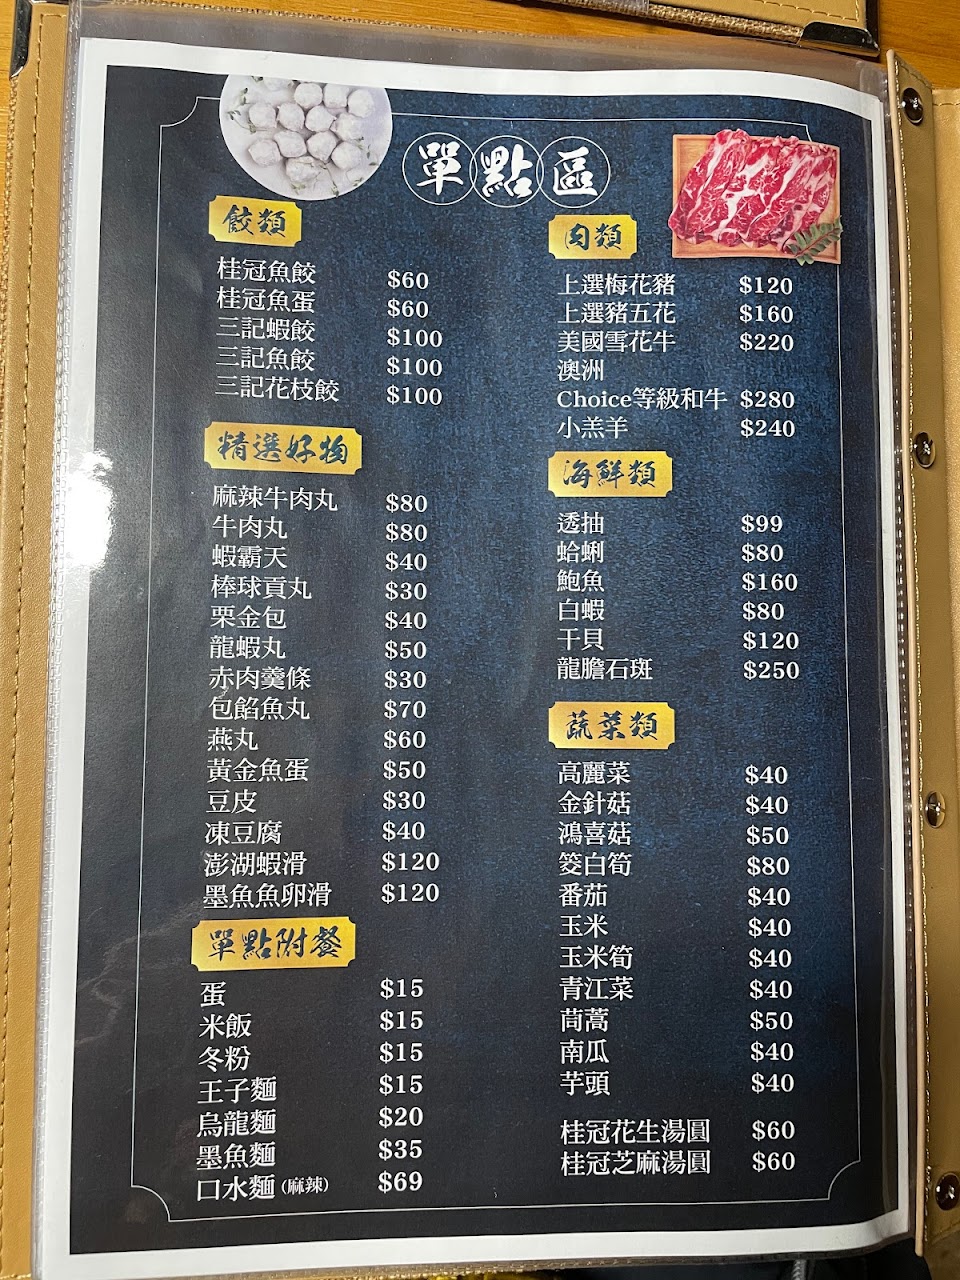 單點區
餃類
桂冠魚餃 $60
桂冠魚蛋 $60
三記蝦餃 $100
三記魚餃 $100
三記花枝餃 $100
精選好物
麻辣牛肉丸 $80
牛肉丸 $80
蝦霸天 $40
棒球貢丸 $30
栗金包 $40
龍蝦丸 $50
赤肉羹條 $30
包餡魚丸 $70
燕丸 $60
黃金魚蛋 $50
豆皮 $30
凍豆腐 $40
澎湖蝦滑 $120
墨魚魚卵滑 $120
單點附餐
蛋 $15
米飯 $15
冬粉 $15
王子麵 $15
烏龍麵 $20
墨魚麵 $35
口水麵(麻辣) $69
肉類
上選梅花豬 $120
上選豬五花 $160
美國雪花牛 $220
澳洲
Choice等級和牛 $280
小羔羊 $240
海鮮類
透抽 $99
蛤蜊 $80
鮑魚 $160
白蝦 $80
干貝 $120
龍膽石斑 $250
蔬菜類
高麗菜 $40
金針菇 $40
鴻喜菇 $50
筊白筍 $80
番茄 $40
玉米 $40
玉米筍 $40
青江菜 $40
茼蒿 $50
南瓜 $40
芋頭 $40
桂冠花生湯圓 $60
桂冠芝麻湯圓 $60